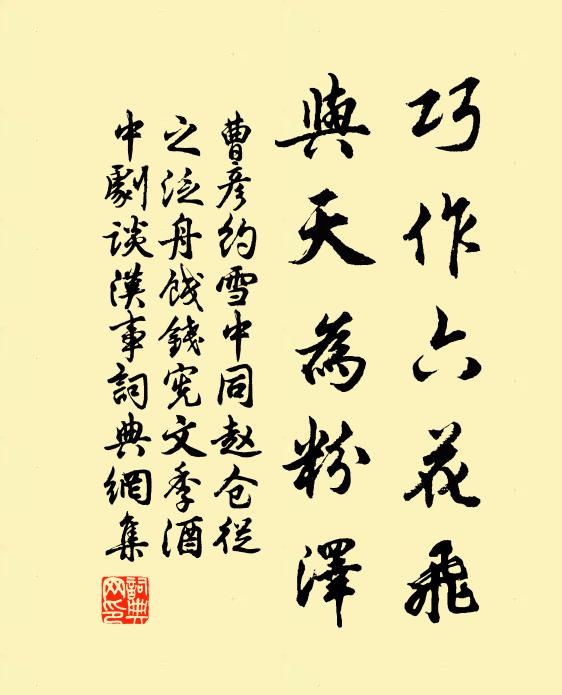 巧作六花飛
與天為粉澤
曹彥約雪中同赵仓從
之泛舟餞錢宪文季酒
中劇談漢事詞典網集
詞典網印